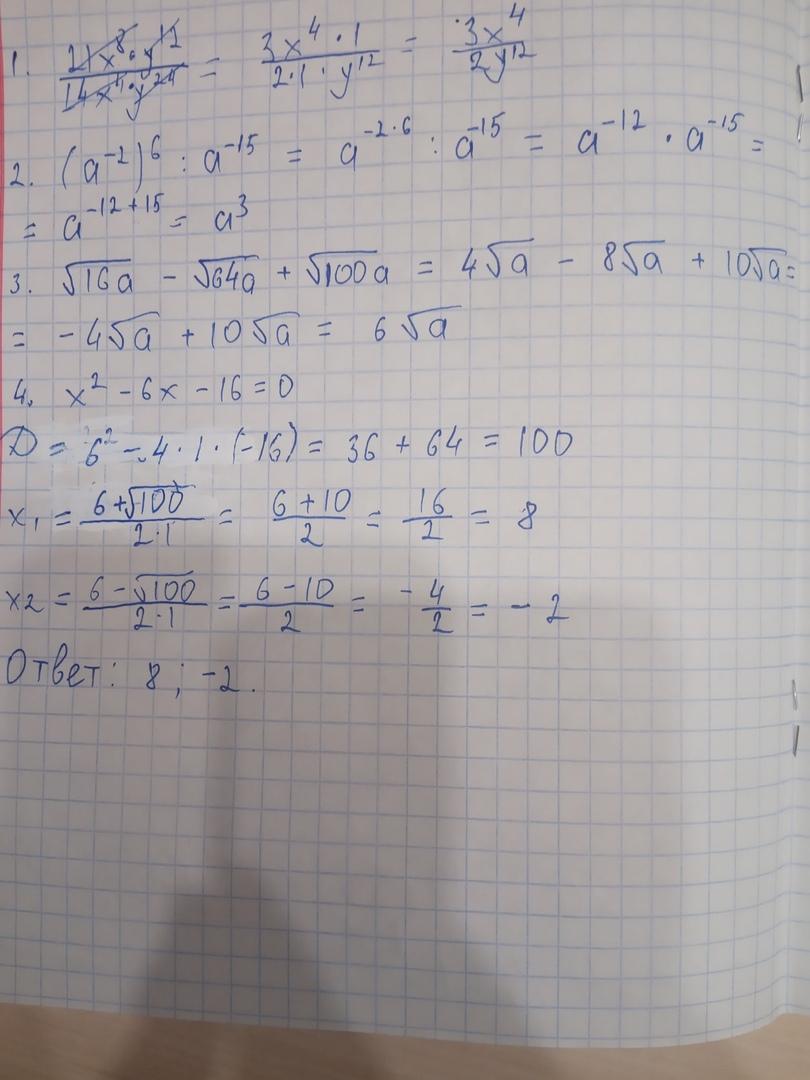 1. 21x⁸·y¹² / 14x⁴·y²⁴ = 3x⁴·1 / 2·1·y¹² = 3x⁴ / 2y¹²
2. (a⁻²)⁶ : a⁻¹⁵ = a⁻²·⁶ : a⁻¹⁵ = a⁻¹² · a⁻¹⁵ =
= a⁻¹²⁺¹⁵ = a³
3. √16a - √64a + √100a = 4√a - 8√a + 10√a =
= -4√a + 10√a = 6√a
4. x² - 6x - 16 = 0
D = 6² - 4·1·(-16) = 36 + 64 = 100
x₁ = 6+√100 / 2·1 = 6+10 / 2 = 16 / 2 = 8
x2 = 6-√100 / 2·1 = 6-10 / 2 = -4 / 2 = -2
Ответ: 8; -2.